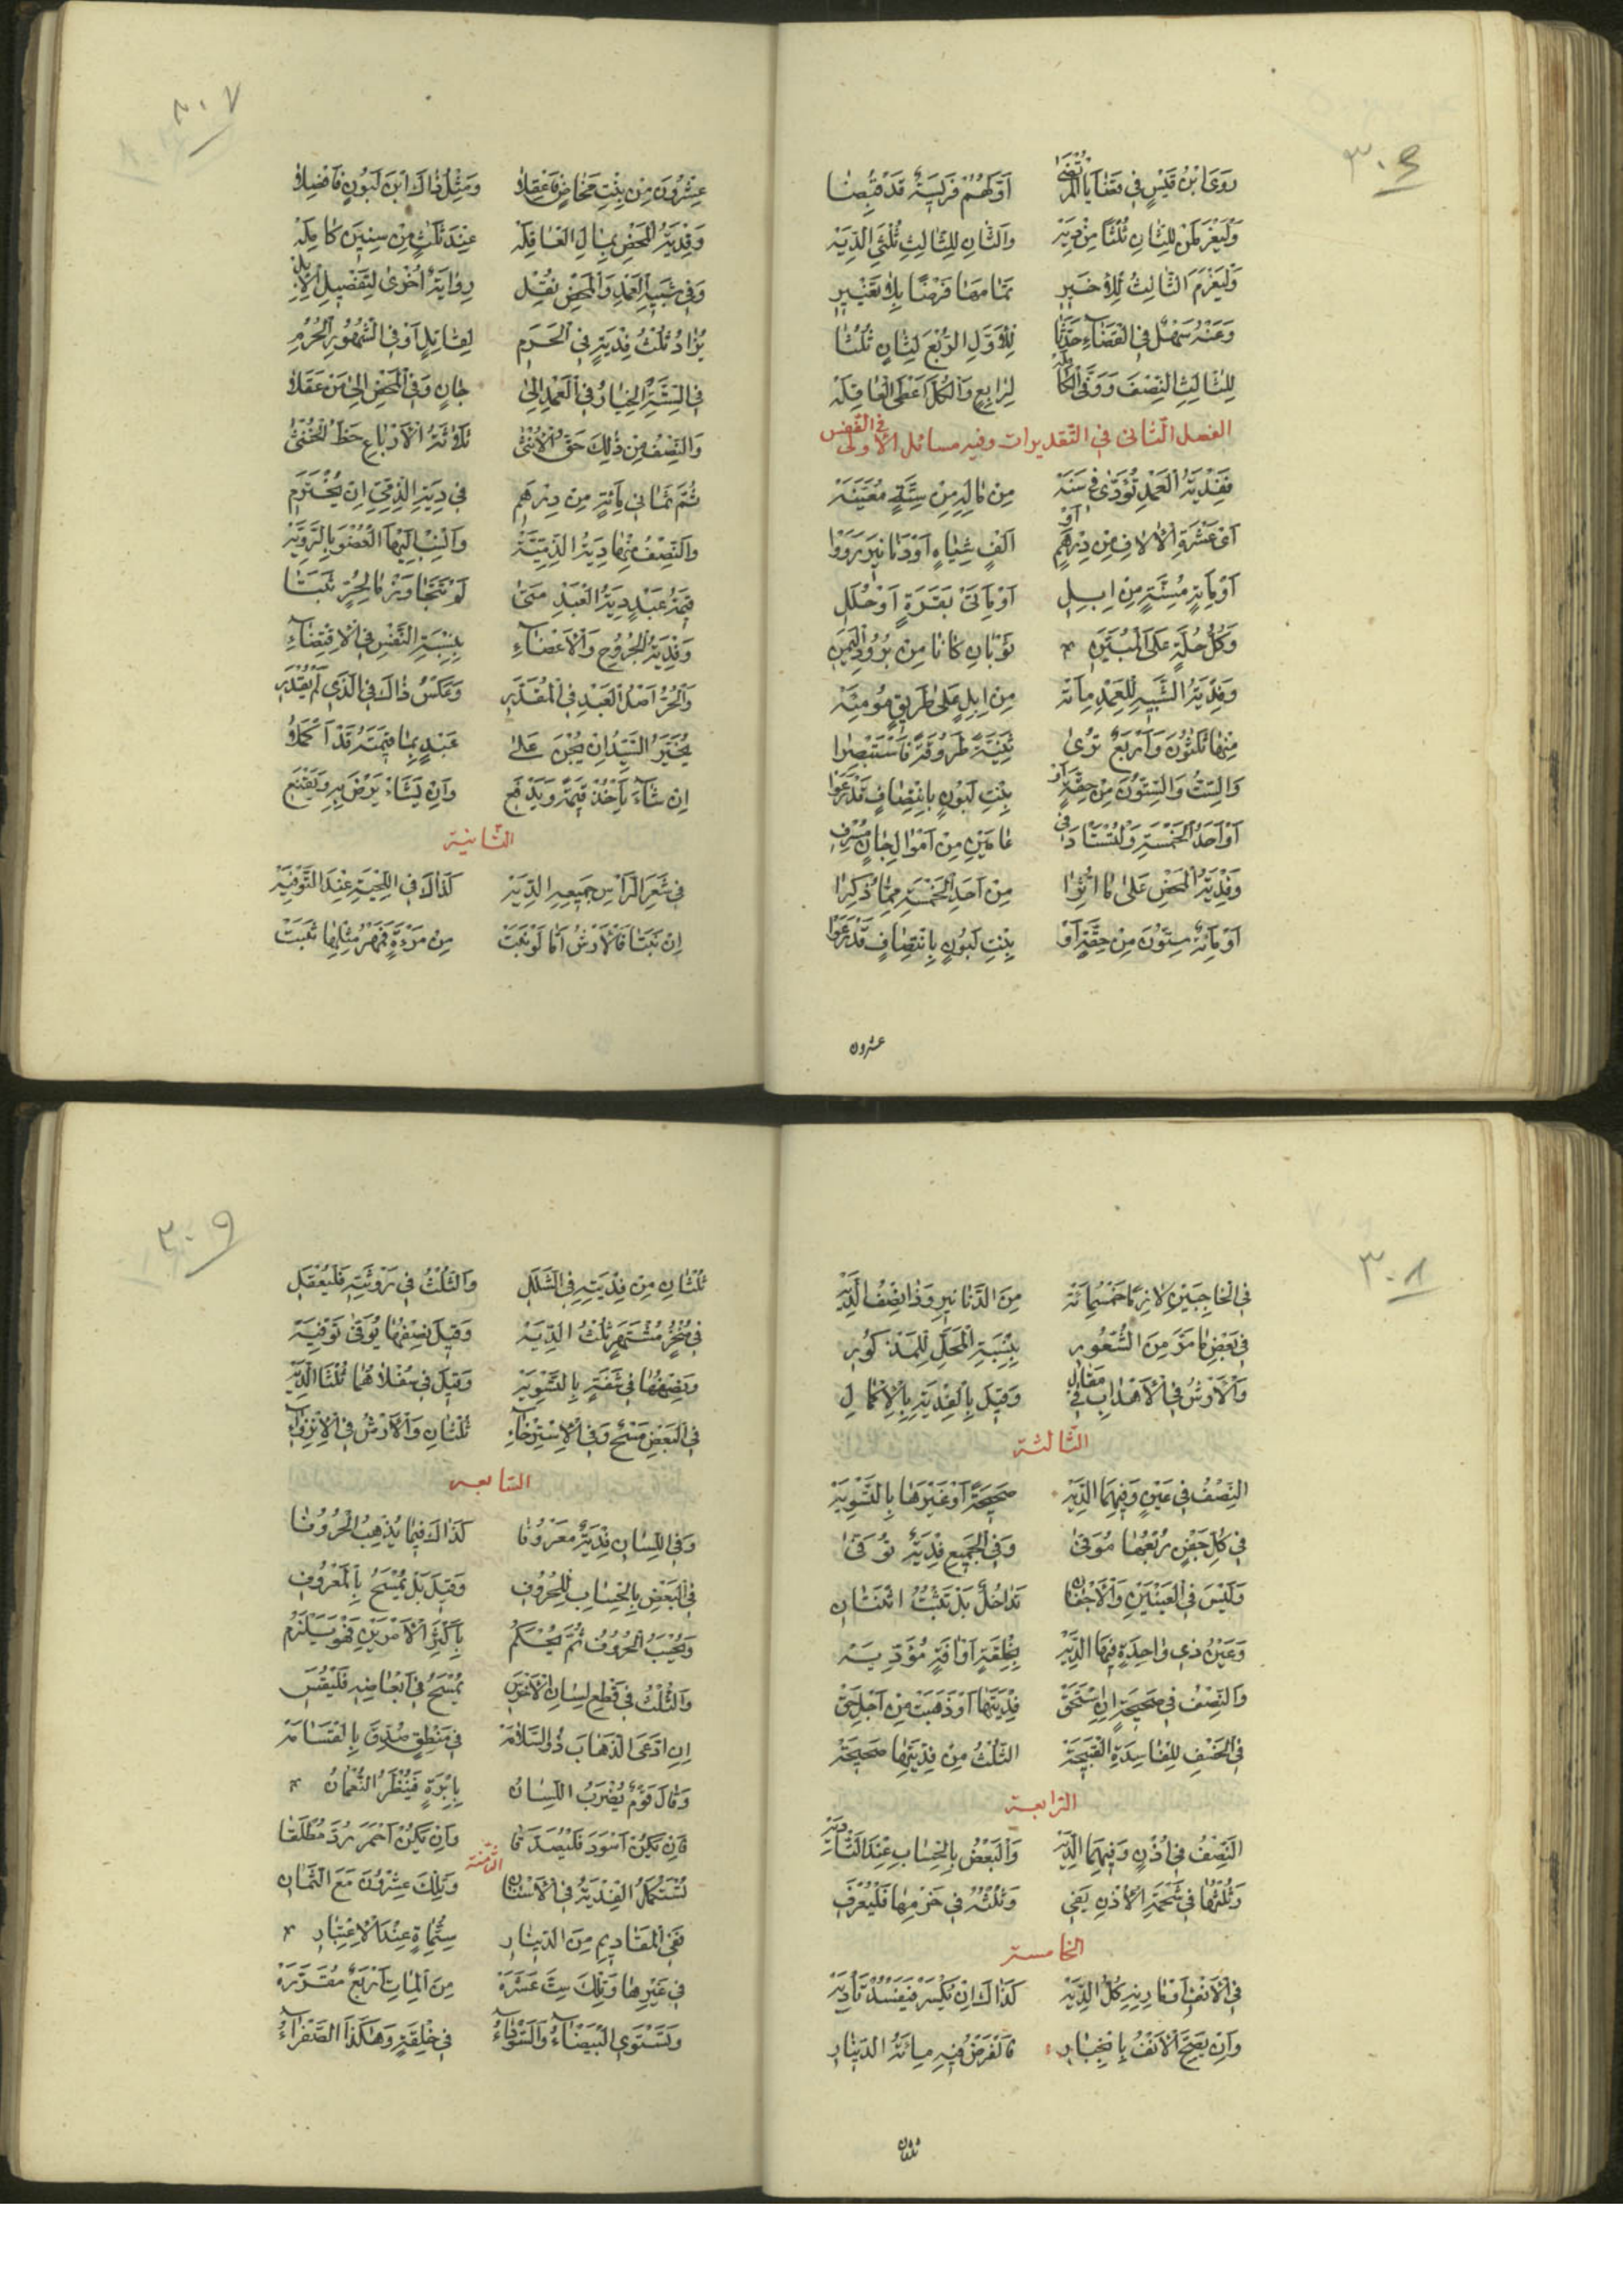 ٣٠٦
رَوَى ابْنُ قَيْسٍ فِي قَضَايَا الْمُرْتَضَى أَوَّلُهُمْ فَرِيسَةٌ قَدْ قُبِضَا
وَلْيَغْرَمَنْ لِلثَّانِ ثُلْثًا مِنْ دِيَهْ وَالثَّانِ لِلثَّالِثِ ثُلْثَيِ الدِّيَهْ
وَلْيَغْرَمَ الثَّالِثُ لِلأَخِيرِ تَمَامَهَا فَرْضًا بِلَا تَغْيِيرِ
وَعَنْهُ سَهْلٌ فِي الْقَضَاءِ حَدَّثَا لِلأَوَّلِ الرُّبْعَ لِثَانٍ ثُلُثَا
لِلثَّالِثِ النِّصْفَ وَوَفَّى الْكَامِلَهْ لِرَابِعٍ وَالْكُلَّ أَعْطَى الْعَاقِلَهْ
الفصل الثاني في التقديرات وفيه مسائل الأولى في النفس
فَفِدْيَةُ الْعَمْدِ تُؤَدَّى فِي سَنَهْ مِنْ مَالِهِ مِنْ سِتَّةٍ مُعَيَّنَهْ
أَيْ عَشْرَةِ الْآلَافِ مِنْ دِرْهَمٍ أَوْ أَلْفِ شِيَاهٍ أَوْ دَنَانِيرَ رَوَوْا
أَوْ مِائَةٍ مُسِنَّةٍ مِنْ إِبِلِ أَوْ مِأَتَيْ بَقَرَةٍ أَوْ حُلَلِ
وَكُلُّ حُلَّةٍ عَلَى الْمُبَيَّنِ ثَوْبَانِ كَانَا مِنْ بُرُودِ الْيَمَنِ
وَفِدْيَةُ الشَّبِيهِ لِلْعَمْدِ مِائَهْ مِنْ إِبِلٍ عَلَى طَرِيقٍ مُومِئَهْ
مِنْهَا ثَلَاثُونَ وَأَرْبَعٌ تُرَى ثَنِيَّةً طَرُوقَةً فَاسْتَبْصِرَا
وَالسِّتُّ وَالسِّتُّونَ مِنْ حِقَّةٍ أَوْ بِنْتِ لَبُونٍ بِانْتِصَافٍ قَدْ رَعَوْا
أَوْ أَحَدُ الْخَمْسَةِ وَلْتُسْتَأْدَ فِي عَامَيْنِ مِنْ أَمْوَالِ جَانٍ مُسْرِفِ
وَفِدْيَةُ الْمَحْضِ عَلَى مَا أُثِرَا مِنْ أَحَدِ الْخَمْسَةِ مِمَّا ذُكِرَا
أَوْ مِائَةٌ سِتُّونَ مِنْ حِقَّةٍ أَوْ بِنْتِ لَبُونٍ بِانْتِصَافٍ قَدْ رَعَوْا
عشرون
٣٠٧
عِشْرُونَ مِنْ بِنْتِ مَخَاضٍ فَاعْقِلَا وَمِثْلُ ذَاكَ ابْنَ لَبُونٍ فَاصِلَا
وَفِدْيَةُ الْمَحْضِ بِمَالِ الْعَاقِلَهْ عِنْدَ ثَلَاثٍ مِنْ سِنِينَ كَامِلَهْ
وَفِي شَبِيهِ الْعَمْدِ وَالْمَحْضِ نُقِلْ رِوَايَةٌ أُخْرَى لِتَفْضِيلِ الْإِبِلْ
يُزَادُ ثُلْثُ فِدْيَةٍ فِي الْحَرَمِ لِقَاتِلٍ أَوْ فِي الشُّهُورِ الْحُرُمِ
فِي السِّتَّةِ الْخِيَارُ فِي الْعَمْدِ إِلَى جَانٍ وَفِي الْمَحْضِ إِلَى مَنْ عَقَلَا
وَالنِّصْفُ مِنْ ذَلِكَ حَقُّ الْأُنْثَى ثَلَاثَةُ الْأَرْبَاعِ حَظُّ الْخُنْثَى
ثُمَّ ثَمَانِي مِائَةٍ مِنْ دِرْهَمِ فِي دِيَةِ الذِّمِّيِّ إِنْ يُخْتَرَمِ
وَالنِّصْفُ مِنْهَا دِيَةُ الذِّمِّيَّةْ وَانْسِبْ إِلَيْهَا الْعُضْوَ بِالرَّوِيَّةْ
قِيمَةُ عَبْدٍ دِيَةُ الْعَبْدِ مَتَى لَوْ تَتَجَاوَزْ مَا لِحُرٍّ ثَبَتَا
وَفِدْيَةُ الْجُرُوحِ وَالْأَعْضَاءِ بِنِسْبَةِ النَّفْسِ فِي الْاِقْتِضَاءِ
وَالْحُرُّ أَصْلُ الْعَبْدِ فِي الْمُقَدَّرِ وَعَكْسُ ذَاكَ فِي الَّذِي لَمْ يُقْدَرِ
يُخَيَّرُ السَّيِّدُ إِنْ يُجْنَ عَلَى عَبْدٍ بِمَا قِيمَتَهُ قَدْ أَكْمَلَا
إِنْ شَاءَ يَأْخُذْ قِيمَةً وَيَدْفَعِ وَإِنْ يَشَاءْ يَرْضَ بِهِ وَيَقْنَعِ
الثانية
فِي شَعَرِ الرَّأْسِ جَمِيعِهِ الدِّيَهْ كَذَاكَ فِي اللِّحْيَةِ عِنْدَ التَّوْفِيَهْ
إِنْ نَبَتَا فَالْأَرْشُ أَمَّا لَوْ نَبَتْ مِنْ مَرْءَةٍ فَمَهْرُ مِثْلِهَا ثَبَتْ
٣٠٨
فِي الْحَاجِبَيْنِ لَازِمًا خَمْسُمِائَهْ مِنَ الدَّنَانِيرِ وَذَا نِصْفُ الدِّيَهْ
فِي بَعْضِ مَا مَرَّ مِنَ الشُّعُورِ بِنِسْبَةِ الْمَحَلِّ لِلْمَذْكُورِ
وَالْأَرْشُ فِي الْأَهْدَابِ فِي مَقَالِ وَقِيلَ بِالْفِدْيَةِ بِالْإِكْمَالِ
الثالثة
النِّصْفُ فِي عَيْنٍ وَفِيهِمَا الدِّيَهْ صَحِيحَةً أَوْ غَيْرَهَا بِالتَّسْوِيَهْ
فِي كُلِّ جَفْنٍ رُبْعُهَا مُوَفَّى وَفِي الْجَمِيعِ فِدْيَةٌ تُوَفَّى
وَلَيْسَ فِي الْعَيْنَيْنِ وَالْأَجْفَانِ تَدَاخُلٌ بَلْ تَثْبُتُ اثْنَتَانِ
وَعَيْنُ ذِي وَاحِدَةٍ فِيهَا الدِّيَهْ بِخِلْقَةٍ أَوْ آفَةٍ مُؤَدِّيَهْ
وَالنِّصْفُ فِي صَحِيحَةٍ إِنِ اسْتَحَقّ فِدْيَتَهَا أَوْ ذَهَبَتْ مِنْ أَجْلِ حَقّ
فِي الْخَسْفِ لِلْفَاسِدَةِ الْقَبِيحَهْ الثُّلْثُ مِنْ فِدْيَتِهَا صَحِيحَهْ
الرابعة
النِّصْفُ فِي أُذُنٍ وَفِيهِمَا الدِّيَهْ وَالْبَعْضُ بِالْحِسَابِ عِنْدَ التَّأْدِيَهْ
وَثُلْثُهَا فِي شَحْمَةِ الْأُذْنِ يَفِي وَثُلْثُهُ فِي خَرْمِهَا فَلْيُعْرَفِ
الخامسة
فِي الْأَنْفِ أَوْ مَارِنِهِ كُلُّ الدِّيَهْ كَذَاكَ إِنْ تُكْسَرْ فَيَفْسُدْ تَأْدِيَهْ
وَإِنْ يَصِحَّ الْأَنْفُ بِانْجِبَارِ فَالْفَرْضُ فِيهِ مِائَةُ الدِّينَارِ
ثلثان
٣٠٩
ثُلْثَانِ مِنْ فِدْيَتِهِ فِي الشَّلَلِ وَالثُّلْثُ فِي رَوْثَتِهِ فَلْيُعْقَلِ
فِي مَنْخِرٍ مُشْتَهِرٍ ثُلْثُ الدِّيَهْ وَقِيلَ نِصْفُهَا يُوَفَّى تَوْفِيَهْ
وَنِصْفُهَا فِي شَفَةٍ بِالتَّسْوِيَهْ وَقِيلَ فِي سُفْلَاهُمَا ثُلْثَا الدِّيَهْ
فِي الْبَعْضِ مَسْحٌ وَفِي الْاِسْتِرْخَاءِ ثُلْثَانِ وَالْأَرْشُ فِي الْاِنْزِوَاءِ
السابعة
وَفِي اللِّسَانِ فِدْيَةٌ مَعْرُوفَا كَذَاكَ فِيمَا يُذْهِبُ الْحُرُوفَا
فِي الْبَعْضِ بِالْحِسَابِ لِلْحُرُوفِ وَقِيلَ بَلْ يُمْسَحُ بِالْمَعْرُوفِ
وَتُحْسَبُ الْحُرُوفُ ثُمَّ يُحْكَمُ بِأَكْثَرِ الْأَمْرَيْنِ فَهْوَ يَلْزَمُ
وَالثُّلْثُ فِي قَطْعِ لِسَانِ الْأَخْرَسِ يُمْسَحُ فِي أَبْعَاضِهِ فَلْيُقَسِ
إِنِ ادَّعَى الذَّهَابَ ذُو السَّلَامَهْ فِي مَنْطِقٍ صُدِّقَ بِالْقَسَامَهْ
وَقَالَ قَوْمٌ يُضْرَبُ اللِّسَانُ بِإِبْرَةٍ فَيُنْظَرُ النُّعْمَانُ
فَإِنْ يَكُنْ أَسْوَدَ فَلْيُصَدَّقَا وَإِنْ يَكُنْ أَحْمَرَ رُدَّ مُطْلَقَا
الثامنة
تُسْتَكْمَلُ الْفِدْيَةُ فِي الْأَسْنَانِ وَتِلْكَ عِشْرُونَ مَعَ الثَّمَانِ
فَفِي الْمَقَادِيمِ مِنَ الدِّينَارِ سِتُّمِائَةٍ عِنْدَ الْاِعْتِبَارِ
فِي غَيْرِهَا وَتِلْكَ سِتَّ عَشَرَهْ مِنَ الْمِئَاتِ أَرْبَعٌ مُقَرَّرَهْ
وَتَسْتَوِي الْبَيْضَاءُ وَالسَّوْدَاءُ فِي خِلْقَةٍ وَهَكَذَا الصَّفْرَاءُ